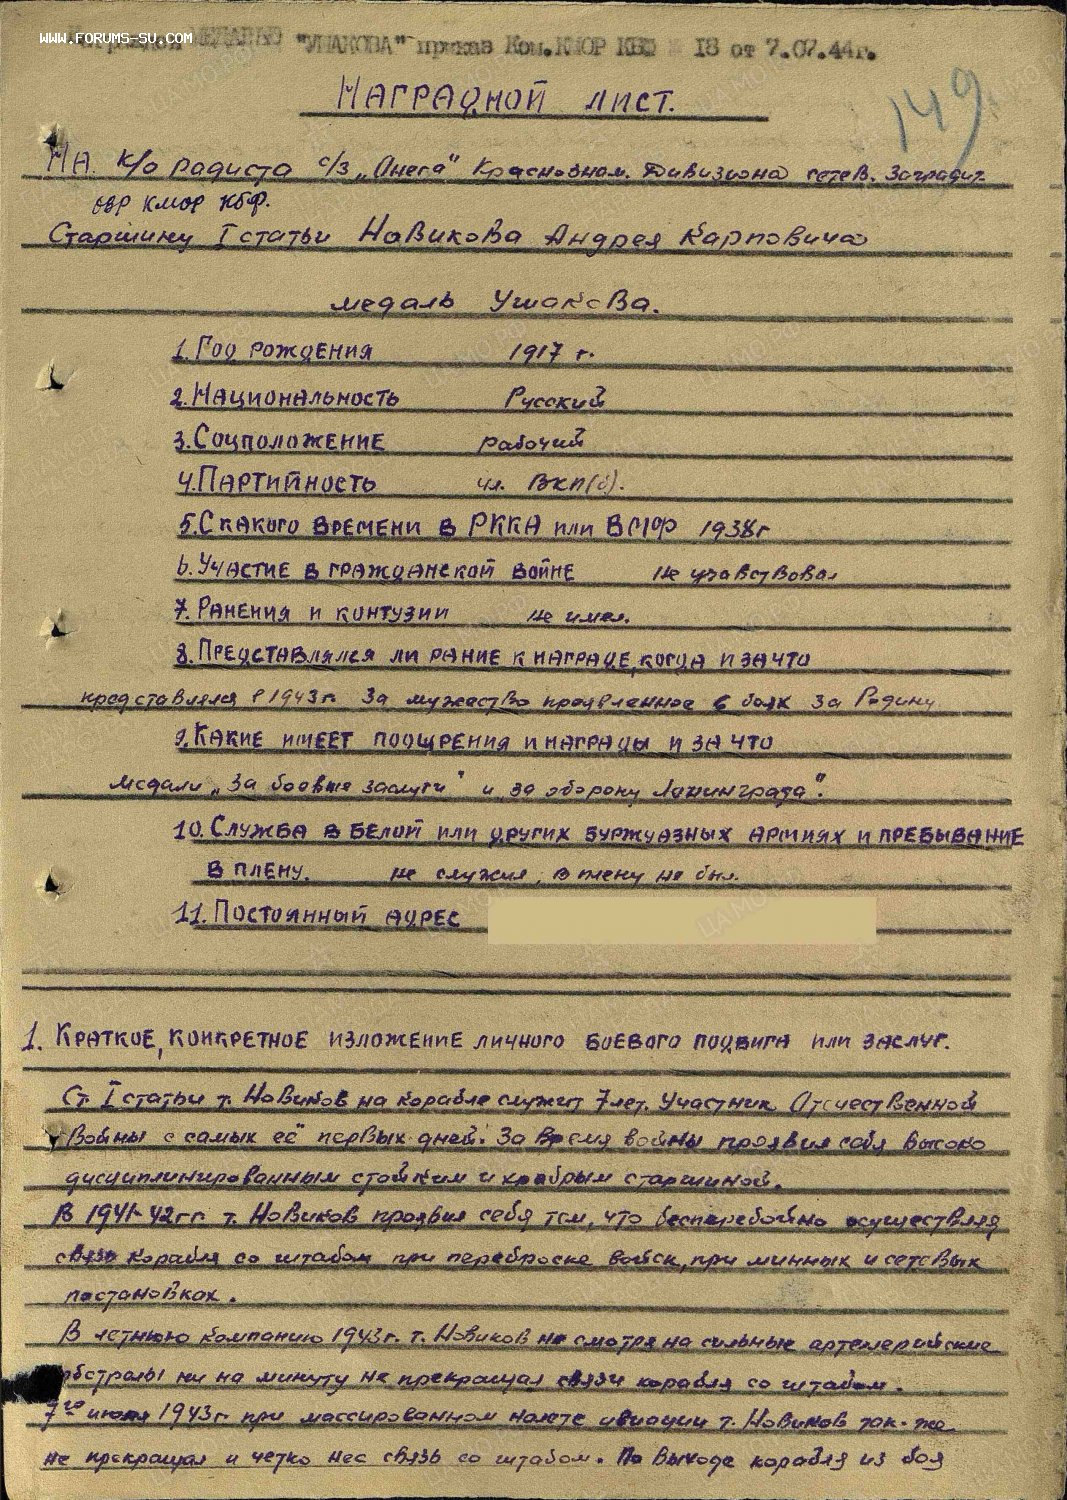 WWW.FORUMS-SU.COM
МЕДАЛЬЮ "УШАКОВА" приказ Ком.КМОР КБФ № 18 от 7.07.44г.
149
НАГРАДНОЙ ЛИСТ.
НА к/о радиста с/з „Онега" Краснознам. Дивизиона сетев. заградит.
ОВР КМОР КБФ.
Старшину I статьи Новикова Андрея Карповича
медаль Ушакова.
1. Год рождения 1917 г.
2. Национальность Русский
3. Соцположение рабочий
4. Партийность чл. ВКП(б).
5. С какого времени в РККА или ВМФ 1938г
6. Участие в гражданской войне не учавствовал
7. Ранения и контузии не имел.
8. Представлялся ли рание к награде, когда и за что
представлялся в 1943г. за мужество проявленное в боях за Родину
9. Какие имеет поощрения и награды и за что
медали „За боевые заслуги" и „за оборону Ленинграда".
10. Служба в белой или других буржуазных армиях и пребывание
в плену. не служил, в плену не был.
11. Постоянный адрес
1. Краткое, конкретное изложение личного боевого подвига или заслуг.
Ст. I статьи т. Новиков на корабле служит 7 лет. Участник Отечественной
Войны с самых её первых дней. За время войны проявил себя высоко
дисциплинированным стойким и храбрым старшиной.
В 1941-42 гг. т. Новиков проявил себя тем, что бесперебойно осуществлял
связь корабля со штабом при переброске войск, при минных и сетевых
постановках.
В летнюю компанию 1943г. т. Новиков не смотря на сильные артелерийские
обстрелы ни на минуту не прекращал связи корабля со штабом.
7го июля 1943г при массированном налете авиации т. Новиков так-же
не прекращал и четко нес связь со штабом. По выходе корабля из боя